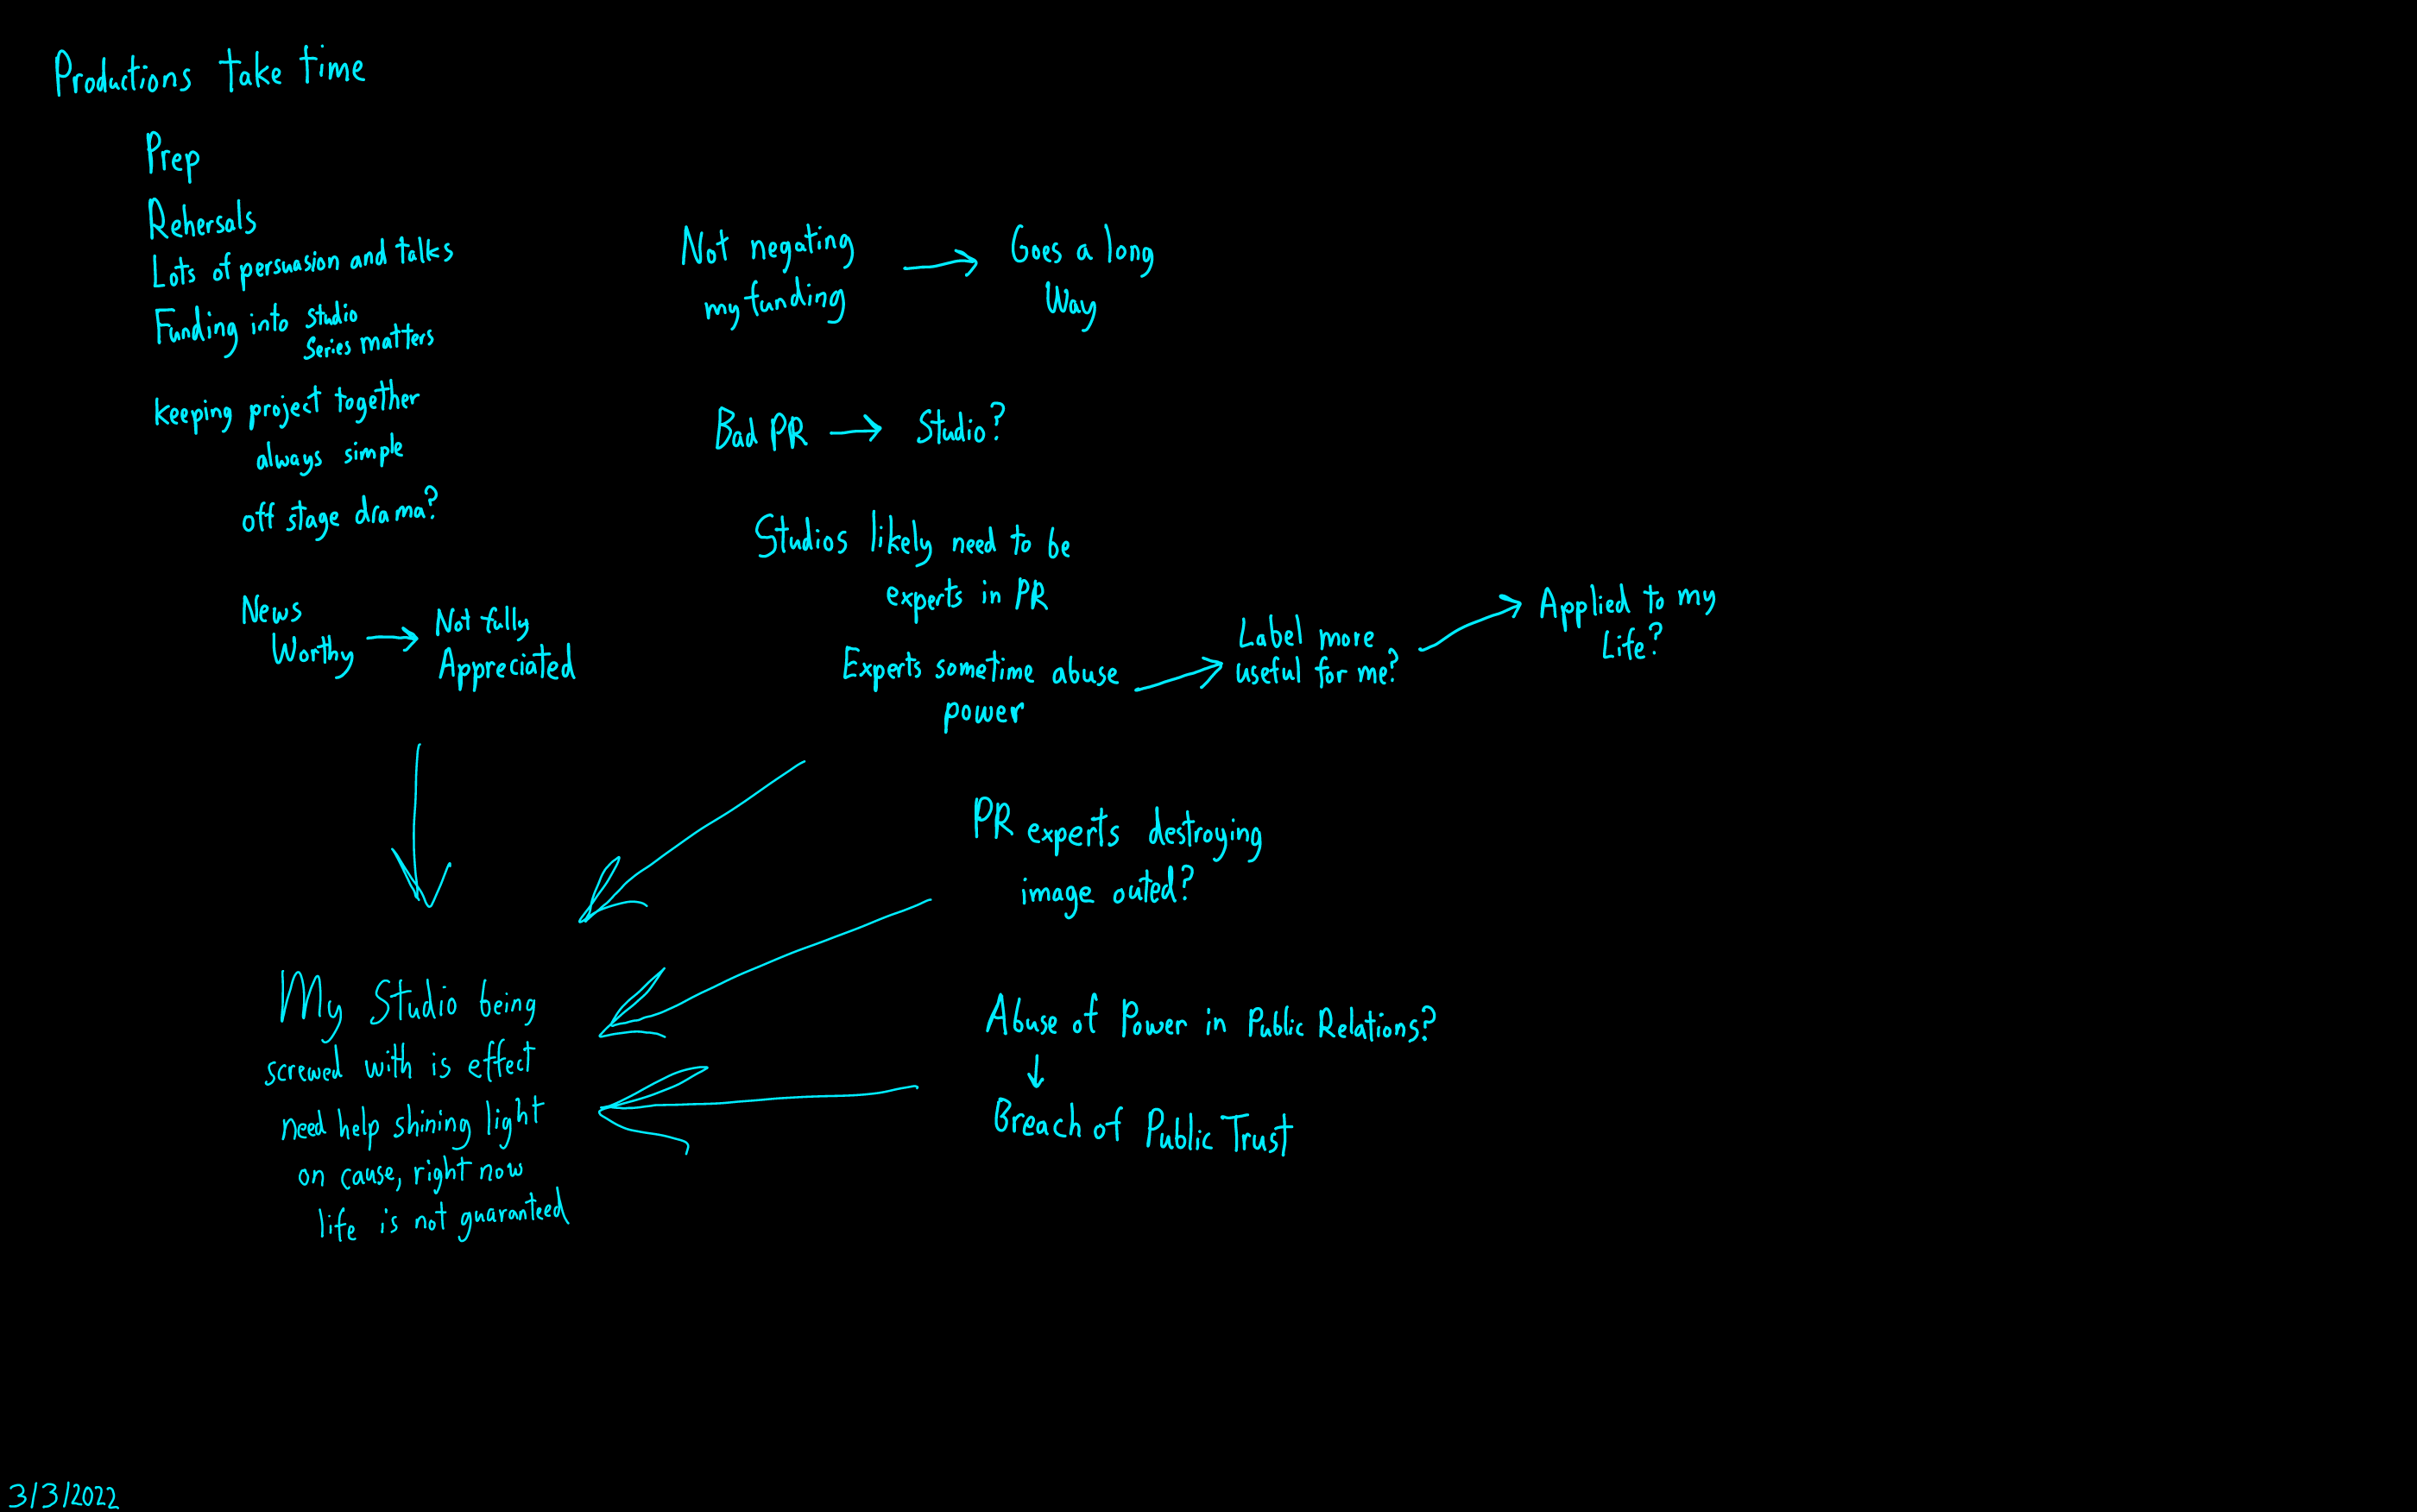 Productions take time
Prep
Rehersals
Lots of persuasion and talks
Funding into studio
series matters
keeping project together
always simple
off stage drama?
News
Worthy
Not fully
Appreciated
My Studio being
screwed with is effect
need help shining light
on cause, right now
life is not guaranteed
Not negating
my funding
Goes a long
Way
Bad PR
Studio?
Studios likely need to be
experts in PR
Experts sometime abuse
power
Label more
useful for me?
Applied to my
Life?
PR experts destroying
image outed?
Abuse of Power in Public Relations?
Breach of Public Trust
3/3/2022